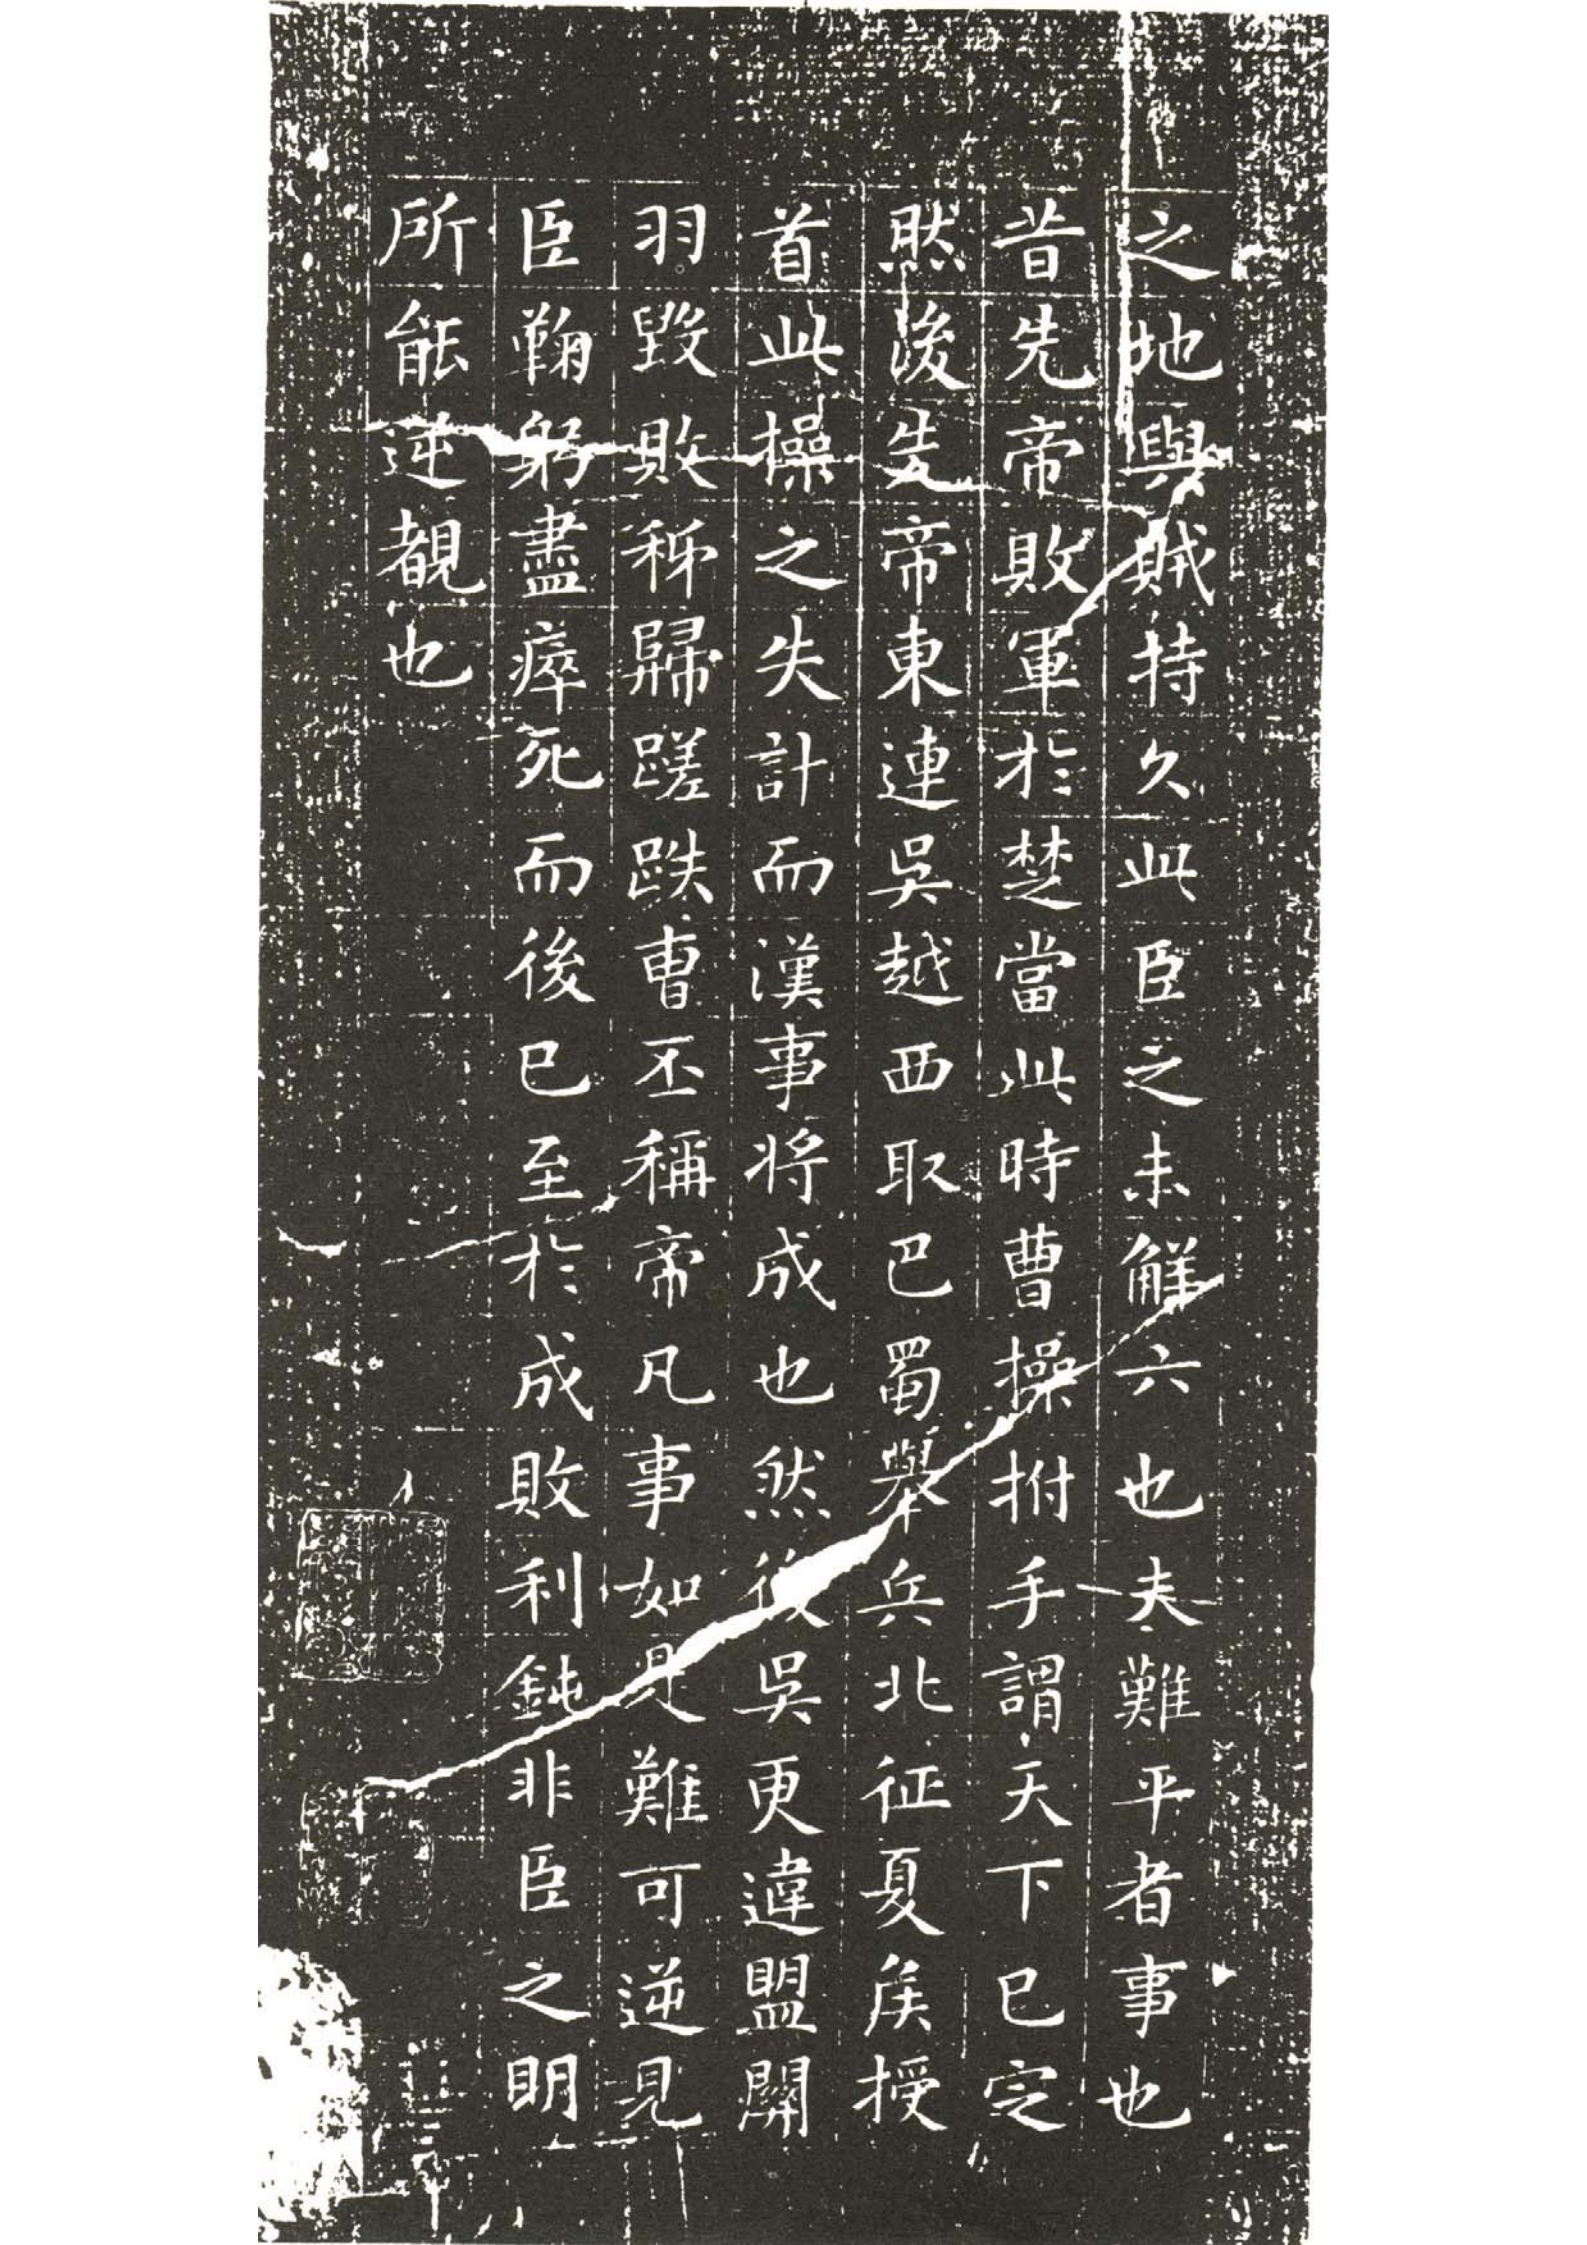 之地與賊持久此臣之未解六也夫難平者事也
昔先帝敗軍於楚當此時曹操拊手謂天下已定
然後先帝東連吳越西取巴蜀舉兵北征夏侯授
首此操之失計而漢事將成也然後吳更違盟關
羽毀敗秭歸蹉跌曹丕稱帝凡事如是難可逆見
臣鞠躬盡瘁死而後已至於成敗利鈍非臣之明
所能逆覩也